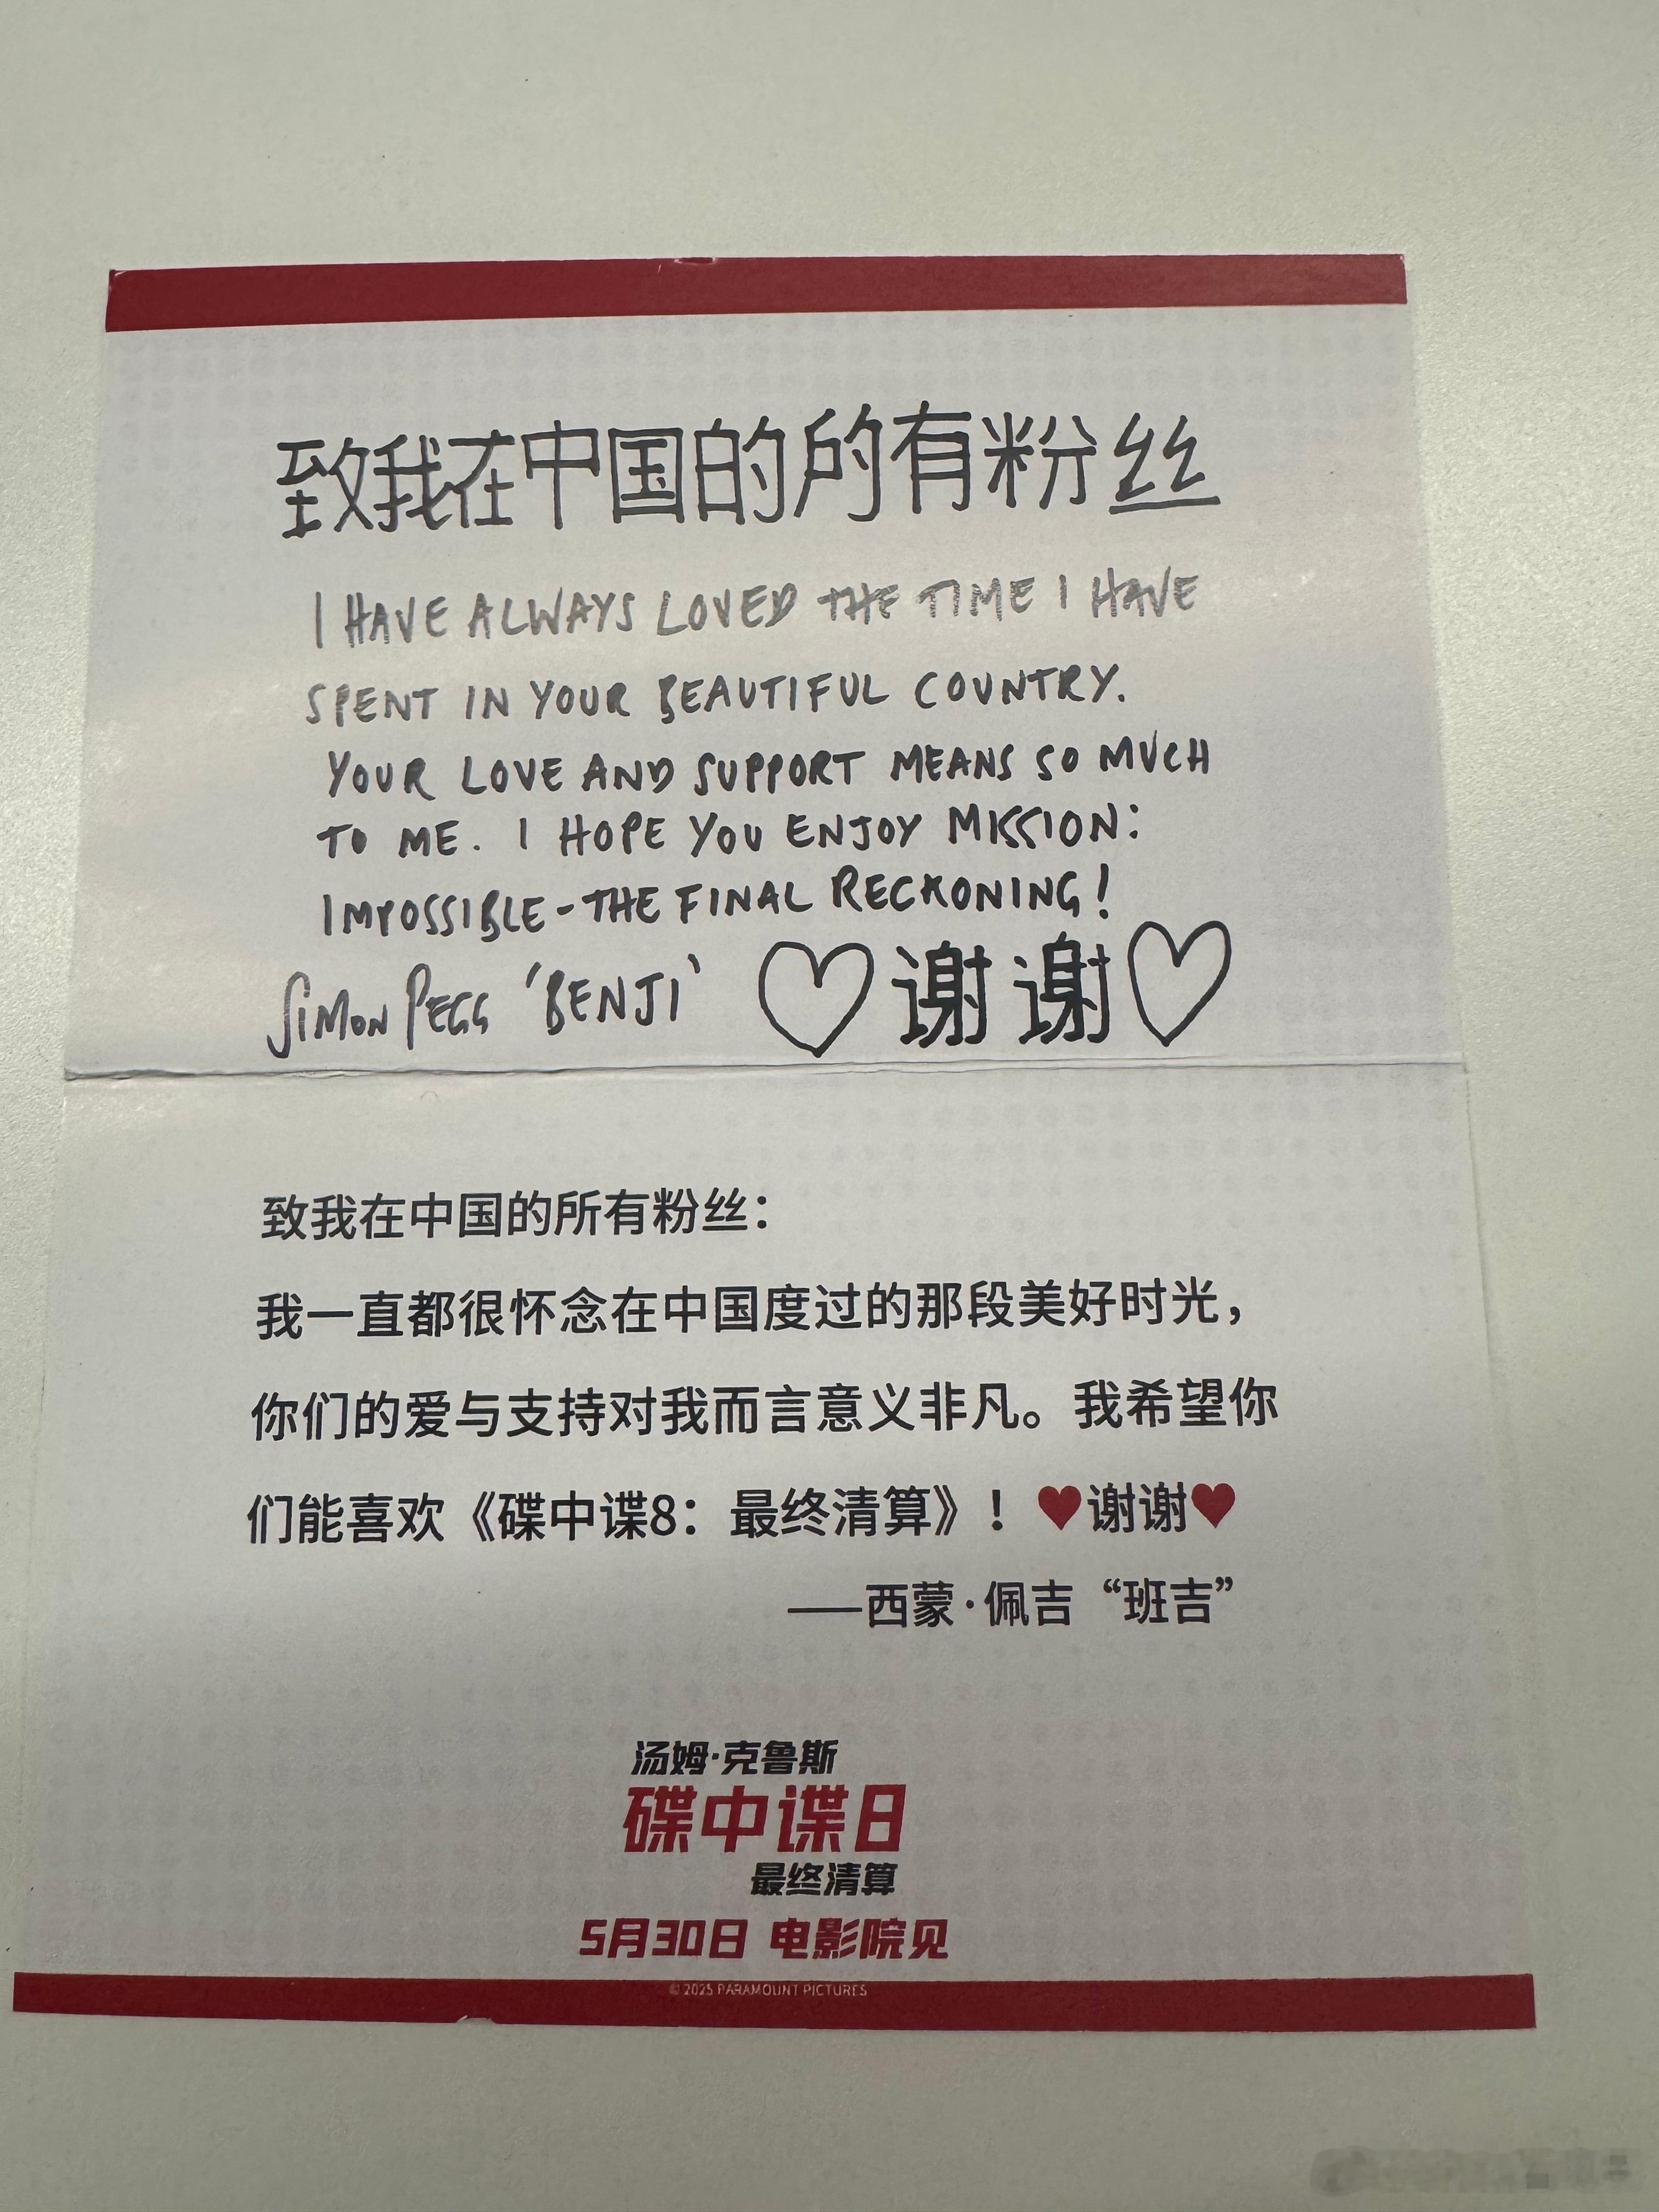 致我在中国的所有粉丝
I HAVE ALWAYS LOVED THE TIME I HAVE
SPENT IN YOUR BEAUTIFUL COUNTRY.
YOUR LOVE AND SUPPORT MEANS SO MUCH
TO ME. I HOPE YOU ENJOY MISSION:
IMPOSSIBLE-THE FINAL RECKONING!
SIMON PEGG 'BENJI' ♡谢谢♡
致我在中国的所有粉丝：
我一直都很怀念在中国度过的那段美好时光，
你们的爱与支持对我而言意义非凡。我希望你
们能喜欢《碟中谍8：最终清算》！♥谢谢♥
——西蒙·佩吉“班吉”
汤姆·克鲁斯
碟中谍8
最终清算
5月30日 电影院见
© 2025 PARAMOUNT PICTURES